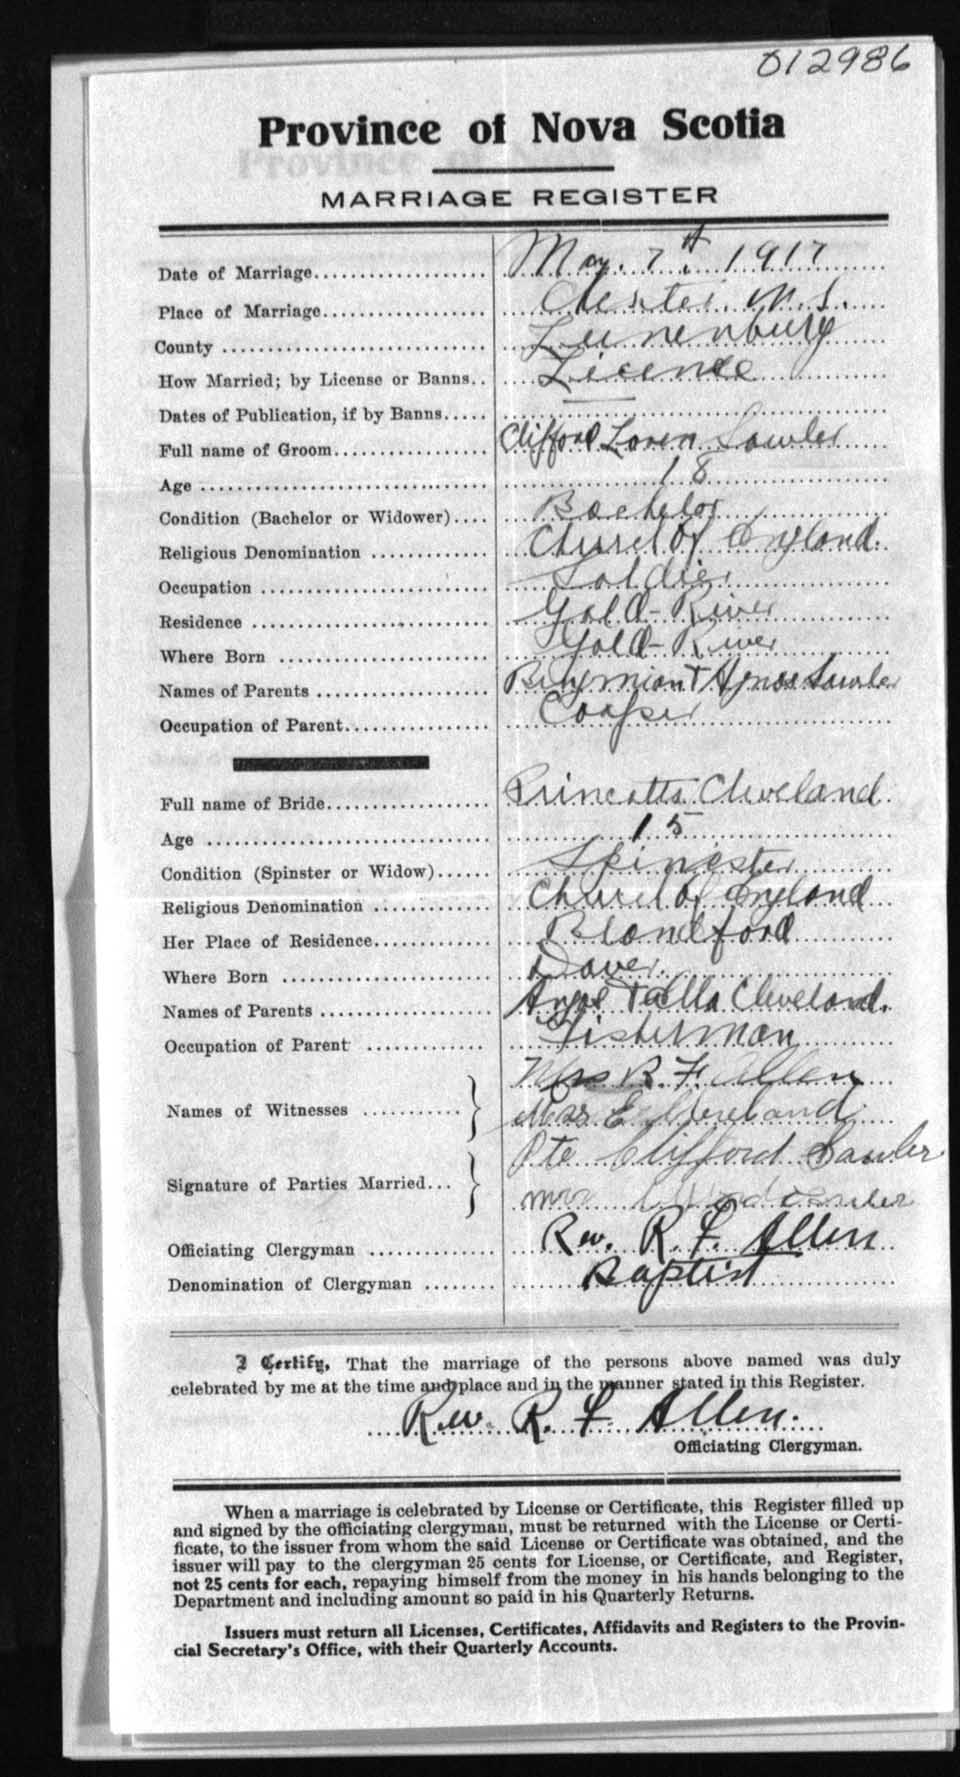 012986
Province of Nova Scotia
MARRIAGE REGISTER
Date of Marriage................... May. 7th. 1917
Place of Marriage.................. Chester. N. S.
County ............................. Lunenburg
How Married; by License or Banns.. Licence
Dates of Publication, if by Banns.....
Full name of Groom................. Clifford Loren Sawler
Age ................................ 18
Condition (Bachelor or Widower).... Bachelor
Religious Denomination ............ Church of England.
Occupation ........................ Soldier
Residence ......................... Gold-River
Where Born ...................... Gold-River
Names of Parents .................. Agnes Sawler
Occupation of Parent............... Cooper
Full name of Bride................. Cleveland.
Age ............................... 15
Condition (Spinster or Widow)...... Spinester
Religious Denomination ............ Church of England
Her Place of Residence............. Blandford
Where Born ...................... Dover.
Names of Parents .................. Cleveland.
Occupation of Parent ............. Fisherman
Names of Witnesses ........... Mrs R. F. Allen
Miss E. Cleveland
Signature of Parties Married... Pte Clifford Sawler
Mrs Clifford Sawler
Officiating Clergyman ............. Rev. R. F. Allen
Denomination of Clergyman ........ Baptist
I Certify, That the marriage of the persons above named was duly
celebrated by me at the time and place and in the manner stated in this Register.
Rev. R. F. Allen.
Officiating Clergyman.
When a marriage is celebrated by License or Certificate, this Register filled up
and signed by the officiating clergyman, must be returned with the License or Certi-
ficate, to the issuer from whom the said License or Certificate was obtained, and the
issuer will pay to the clergyman 25 cents for License, or Certificate, and Register,
not 25 cents for each, repaying himself from the money in his hands belonging to the
Department and including amount so paid in his Quarterly Returns.
Issuers must return all Licenses, Certificates, Affidavits and Registers to the Provin-
cial Secretary's Office, with their Quarterly Accounts.